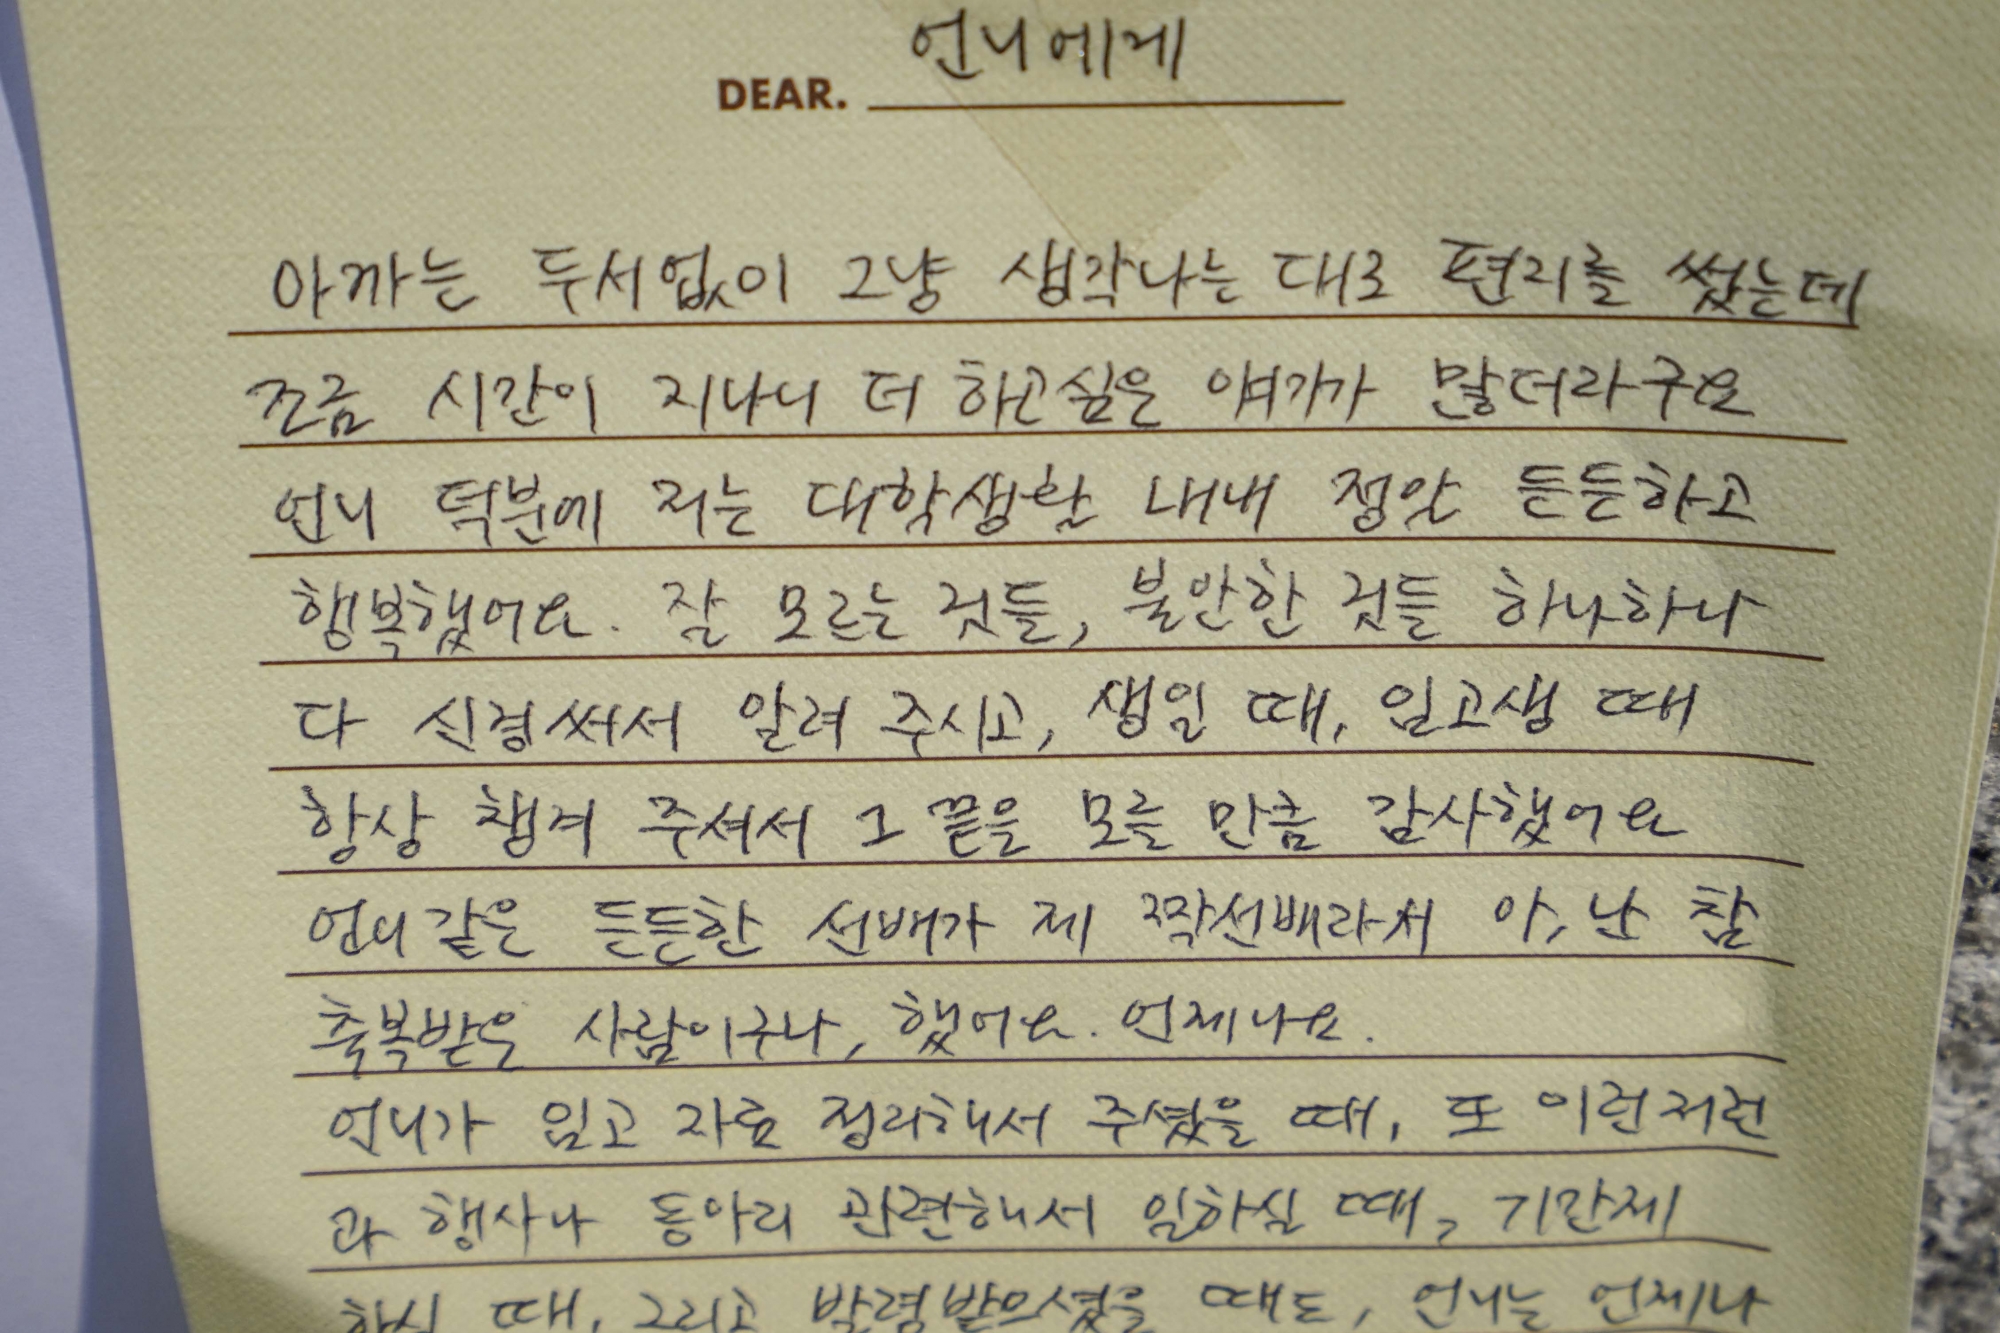 언니에게
DEAR.
아까는 두서없이 그냥 생각나는 대로 편지를 썼는데
조금 시간이 지나니 더 하고싶은 얘기가 많더라구요
언니 덕분에 저는 대학생활 내내 정말 든든하고
행복했어요. 잘 모르는 것들, 불안한 것들 하나하나
다 신경써서 알려 주시고, 생일 때, 임고생 때
항상 챙겨 주셔서 그 끝을 모를 만큼 감사했어요
언니같은 든든한 선배가 제 짝선배라서 아, 난 참
축복받은 사람이구나, 했어요. 언제나요.
언니가 임고 자료 정리해서 주셨을 때, 또 이런저런
과 행사나 동아리 관련해서 임하실 때, 기간제
하실 때, 그리고 발령받으셨을 때도, 언니는 언제나